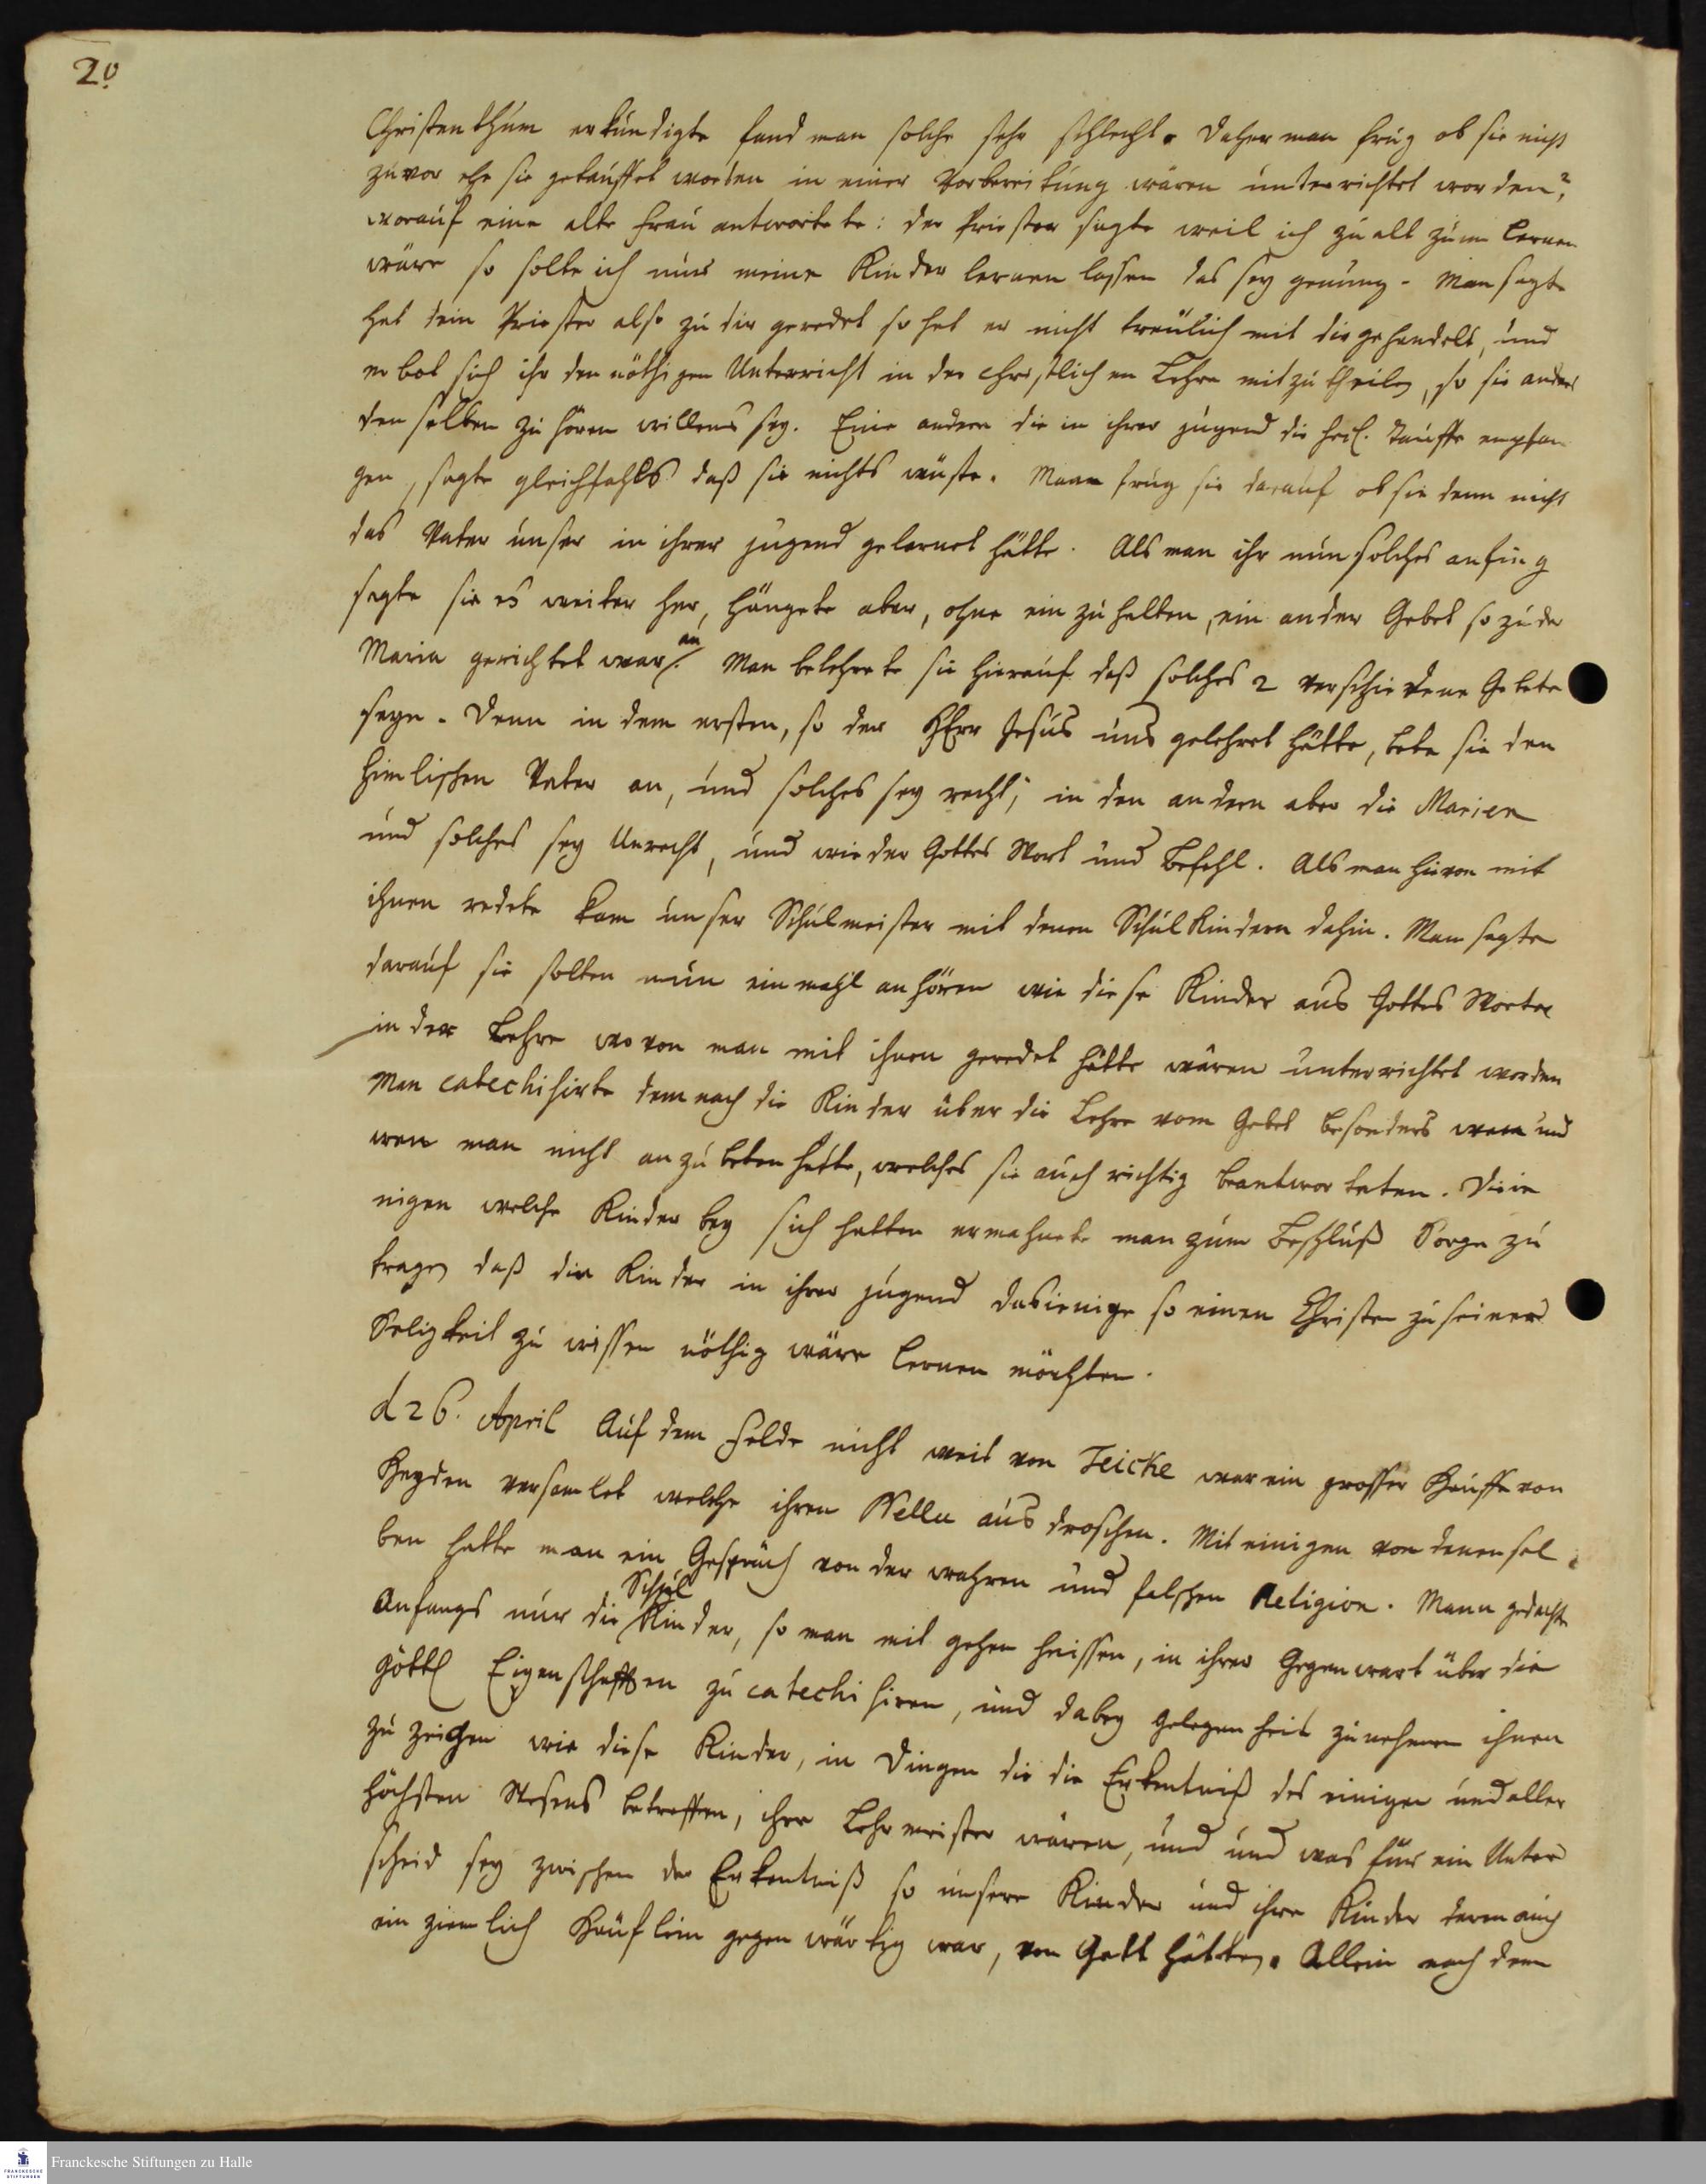 20
Christenthum erkundigte fand man solche sehr schlecht. Daher man frug ob sie nicht
zuvor ehe sie getauffet worden in einer Vorbereitung wären unterrichtet worden?
worauf eine alte Frau antwortete: der Priester sagte weil ich zu alt zum lernen
wäre so solte ich nur meine Kinder lernen lassen das sey genung. Man sagte
hat dein Priester also zu dir geredet so hat er nicht treulich mit dir gehandelt, und
erbot sich ihr den nöthigen Unterricht in der christlichen Lehre mitzutheilen, so sie anders
denselben zu hören willens sey. Eine andere die in ihrer jugend die heil. Tauffe empfan
gen, sagte gleichfahls daß sie nichts wüste. Mann frug sie darauf ob sie denn nicht
das Vater unser in ihrer jugend gelernet hätte. Als man ihr nun solches anfing
sagte sie es weiter her, hängete aber, ohne ein zu halten, ein ander Gebet so zu der
Maria gerichtet war an. Man belehrete sie hierauf daß solches 2 verschiedene Gebete
seyn. Denn in dem ersten, so der HErr Jesus uns gelehret hätte, bete sie den
himlischen Vater an, und solches sey recht; in den andern aber die Marien
und solches sey Unrecht, und wieder Gottes Wort und Befehl. Als man hievon mit
ihnen redete kam unser Schulmeister mit denen Schul Kindern dahin. Man sagte
darauf sie solten nun einmahl anhören wie diese Kinder aus Gottes Worte
in der Lehre wovon man mit ihnen geredet hätte wären unterrichtet worden
Man catechisirte demnach die Kinder über die Lehre vom Gebet besonders wem und
wen man nicht anzubeten hätte, welches sie auch richtig beantworteten. Dieie
nigen welche Kinder bey sich hatten ermahnete man zum Beschluß Sorge zu
tragen daß die Kinder in ihrer jugend dasienige so einen Christen zu seiner
Seligkeit zu wissen nöthig wäre lernen möchten.
d 26. April Auf dem Felde nicht weit von Teicke war ein grosser Hauffe von
Heyden versamlet welche ihren Nellu aus droschen. Mit einigen von densel
ben hatte man ein Gespräch von der wahren und falschen Religion. Mann gedachte
Anfangs nur die Schul Kinder, so man mit gehen heissen, in ihrer Gegenwart über die
göttl Eigenschafften zu catechisiren, und dabey gelegenheit zu nehmen ihnen
zu zeichen wie diese Kinder, in Dingen die die Erkentniß des einigen und aller
höchsten Wesens betreffen, ihre Lehrmeister wären, und und was für ein Unter
scheid sey zwischen der Erkentniß so unsere Kinder und ihre Kinder deren auch
ein ziemlich Häuflein gegenwärtig war, von Gott hätten. Allein nach dem
Franckesche Stiftungen zu Halle
FRANCKESCHE
STIFTUNGEN